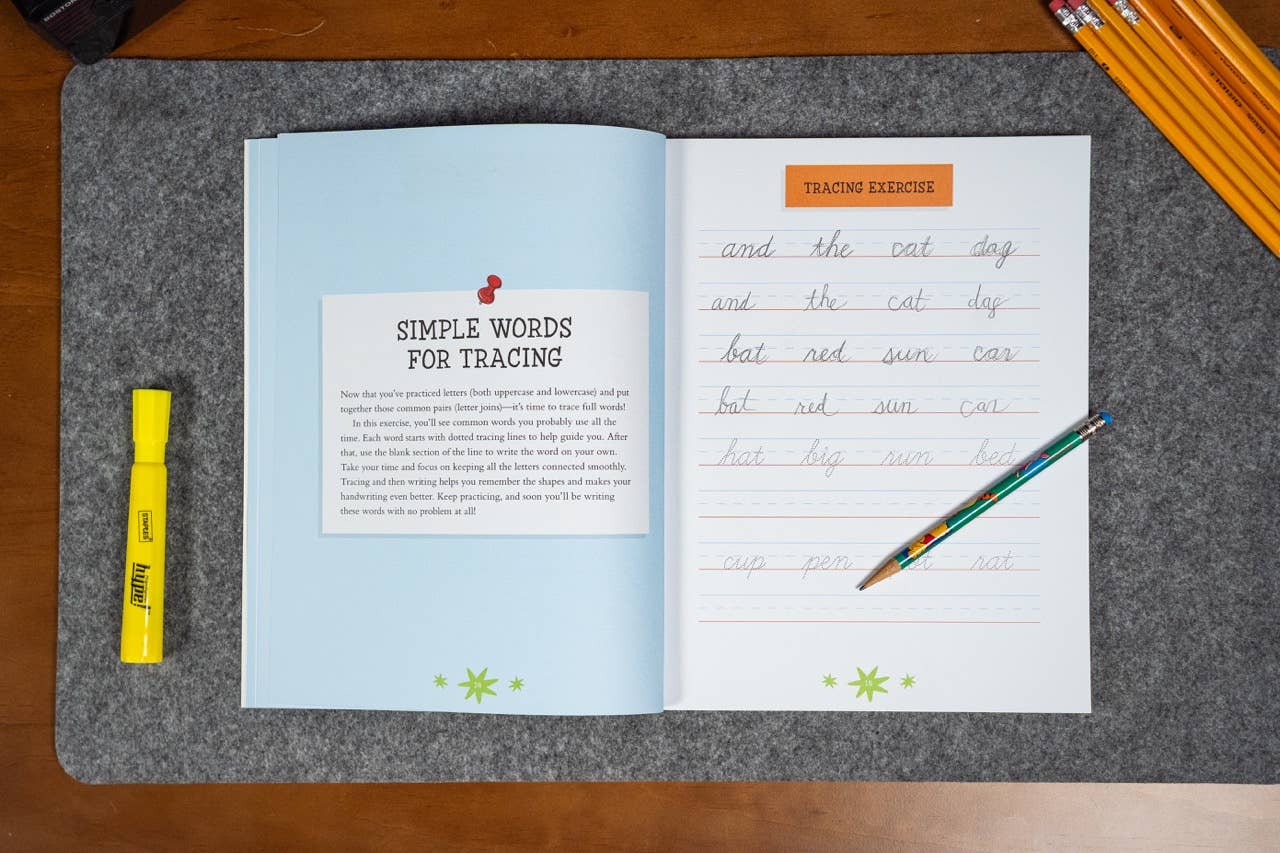 BOSTON
SIMPLE WORDS
FOR TRACING
Now that you've practiced letters (both uppercase and lowercase) and put
together those common pairs (letter joins)—it's time to trace full words!
In this exercise, you'll see common words you probably use all the
time. Each word starts with dotted tracing lines to help guide you. After
that, use the blank section of the line to write the word on your own.
Take your time and focus on keeping all the letters connected smoothly.
Tracing and then writing helps you remember the shapes and makes your
handwriting even better. Keep practicing, and soon you'll be writing
these words with no problem at all!
TRACING EXERCISE
and the cat dag
and the cat dag
bat red sun car
bat red sun car
hat big run bed
cup pen rat
STAPLES
hype!